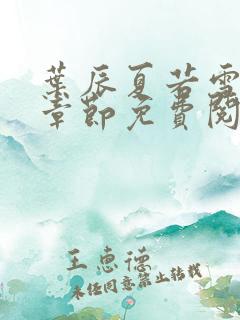 葉辰夏若雪
章節免費閱
王惠德
未经同意禁止转载